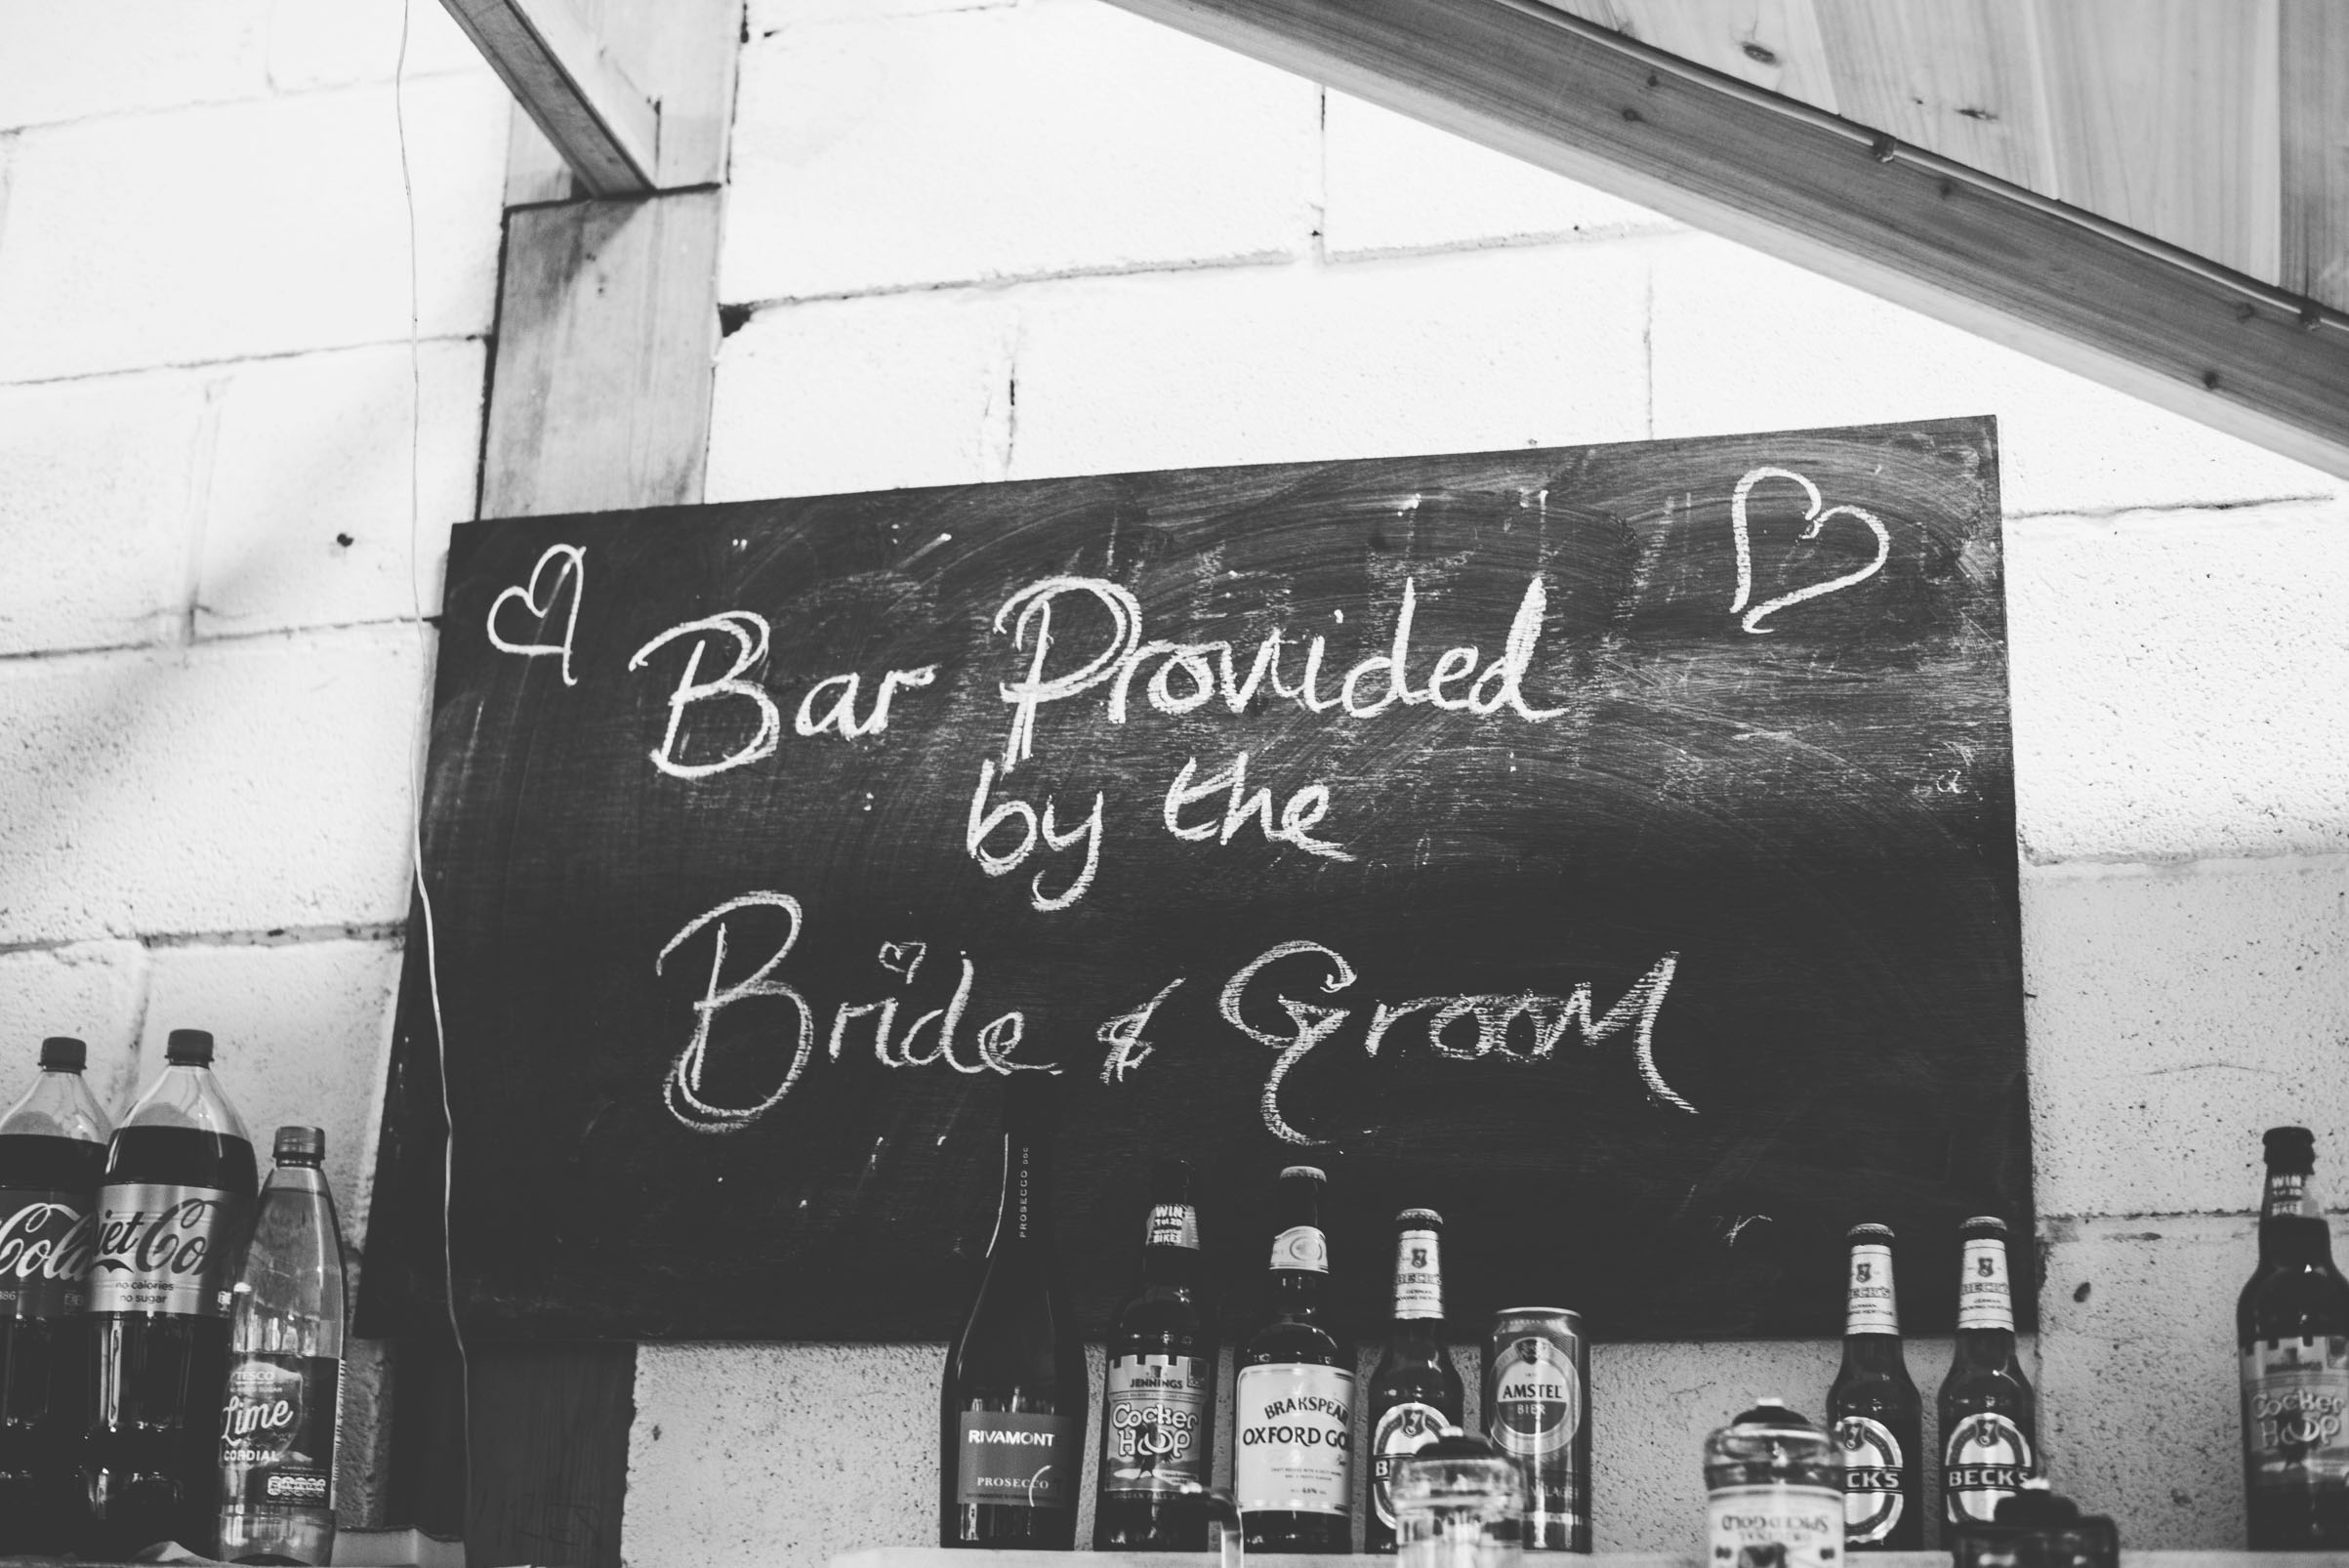 Bar Provided
by the
Bride & Groom
Diet Co
no calories
no sugar
TESCO
Lime
CORDIAL
PROSECCO
RIVAMONT
PROSECCO
WIN
BIKES
JENNINGS
Cocker
Hoop
BRAKSPEAR
OXFORD GO
BECK'S
AMSTEL
BIER
LAGER
BECK'S
CK'S
BECK'S
BECK'S
WIN
BIKES
Cocker
Hoop